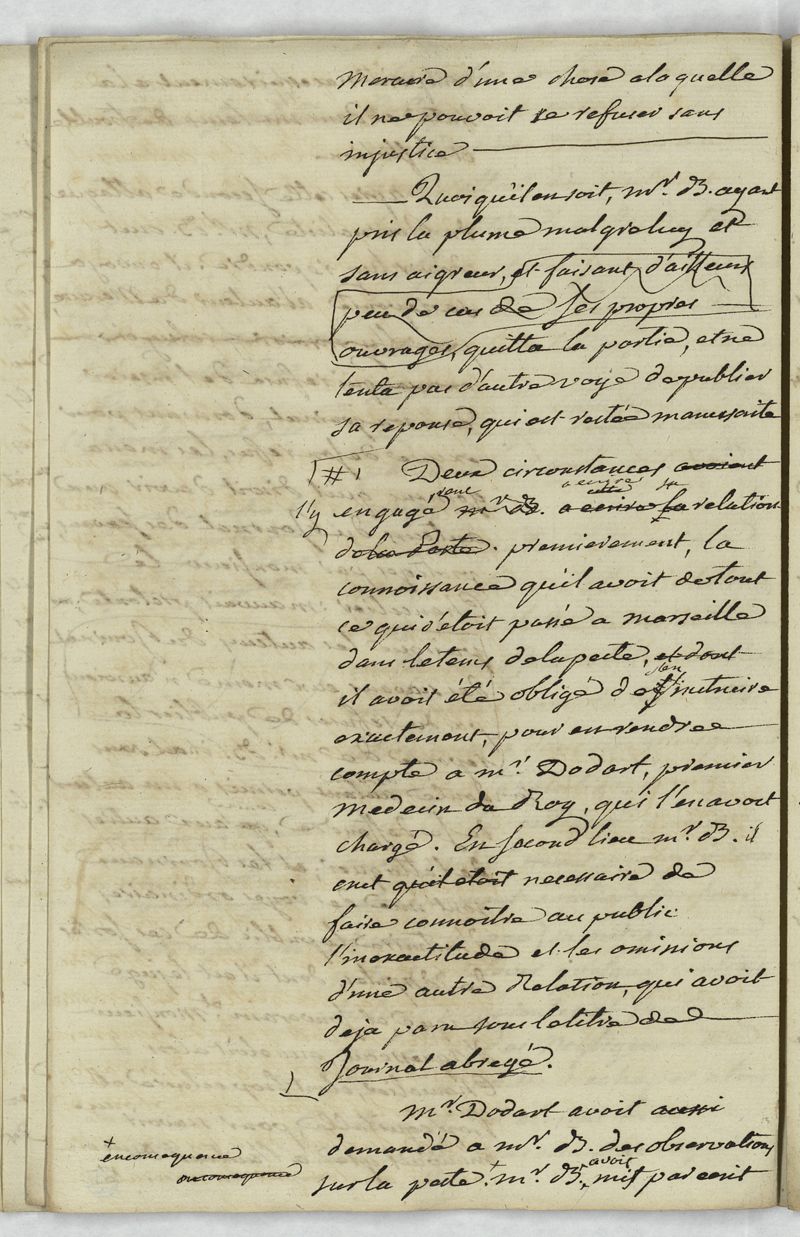 mercure d'une chose a laquelle
il ne pouvoit se refuser sans
injustice
Quoiqu'il en soit, mr. B. ayant
pris la plume malgre luy et
sans aigreur, et faisant d'ailleurs
peu de cas de ses propres
ouvrages, quitta la partie, et ne
tenta pas d'autre voye de publier
sa reponse, qui est restée manuscrite
# Deux circonstances avoient
engagé mr. B. a ecrire la relation
de la Peste. premierement, la
connoissance qu'il avoit de tout
ce qui s'etoit passé a marseille
dans le tems de la peste, et dont
il avoit été obligé de s'en instruire
exactement, pour en rendre
compte a mr. Dodart, premier
medecin du Roy, qui l'en avoit
chargé. En second lieu mr. B. il
crut qu'il etoit necessaire de
faire connoitre au public
l'inexactitude et les omissions
d'une autre Relation, qui avoit
deja paru sous le titre de
Journal abregé.
mr. Dodart avoit aussi
demandé a mr. B. des observations
+ en consequence
en consequence
sur la peste. + mr. B. avoit mis par ecrit